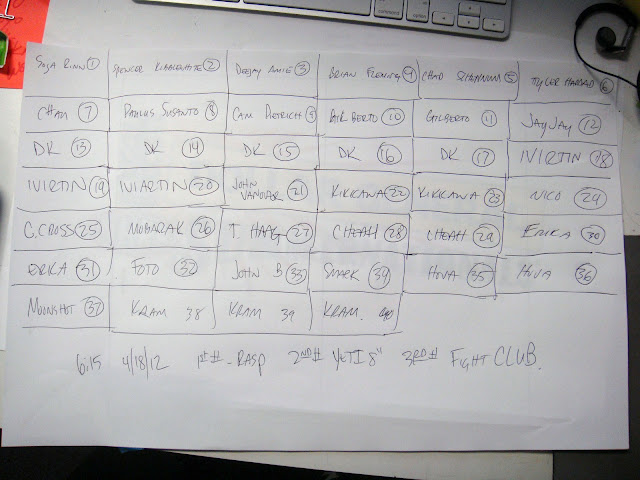 Soja Rinn 1 Spencer Kibblewhite 2 Deejay Amie 3 Brian Fleming 4 Chad 5 Tyler 6
Cham 7 Paulus Susanto 8 Cam Dietrich 9 Air Berto 10 Gilberto 11 Jay Jay 12
DK 13 DK 14 DK 15 DK 16 DK 17 IVIRTIN 18
IVIRTIN 19 IVIARTIN 20 John 21 Kikkawa 22 Kikkawa 23 Nico 24
C.CROSS 25 Mubarak 26 T. HAAG 27 CHEAH 28 CHEAH 29 ERIKA 30
ERIKA 31 FOTO 32 John B 33 34 HOVA 35 HOVA 36
MOONSHOT 37 KRAM 38 KRAM 39 KRAM. 40
6:15 4/18/12 1st # - RASP 2ND # YETI 8" 3RD # FIGHT CLUB.